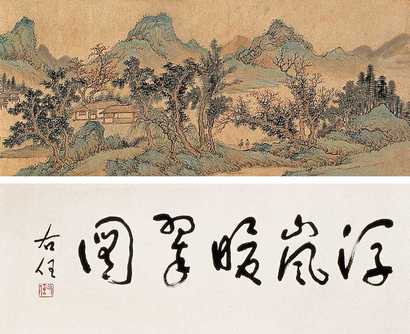 浮嵐暖翠圖
右任